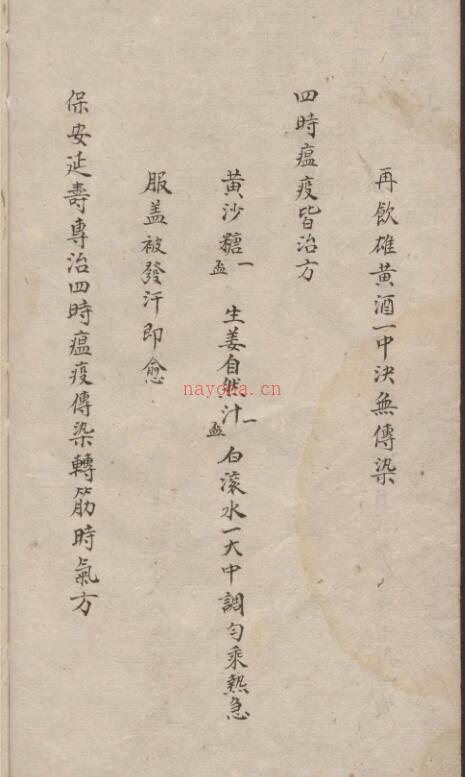 再飲雄黃酒一中決無傳染
四時瘟疫皆治方
黃沙糖一盃 生姜自然汁一盃 白滚水一大中調勻乘熱急
服盖被發汗即愈
保安延壽專治四時瘟疫傳染轉筋時氣方
naycha.cn